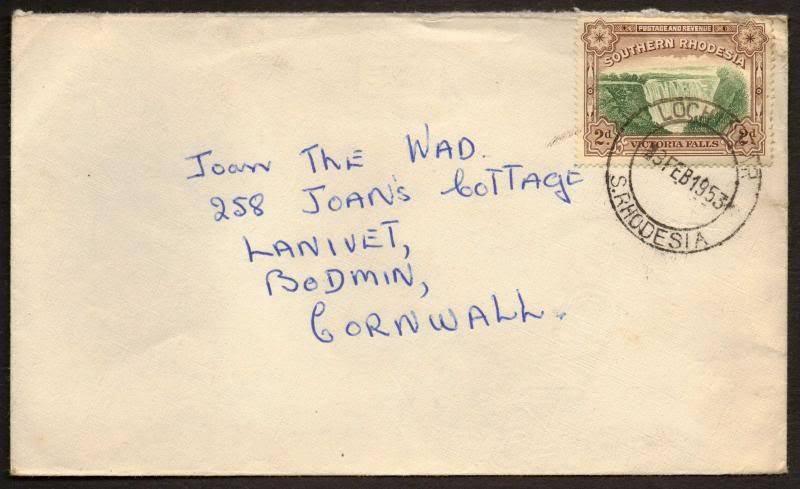 POSTAGE AND REVENUE
SOUTHERN RHODESIA
2d. 2d.
VICTORIA FALLS
FEB 1953
S. RHODESIA
Joan The Wad.
258 Joan's Cottage
Lanivet,
Bodmin,
Cornwall.